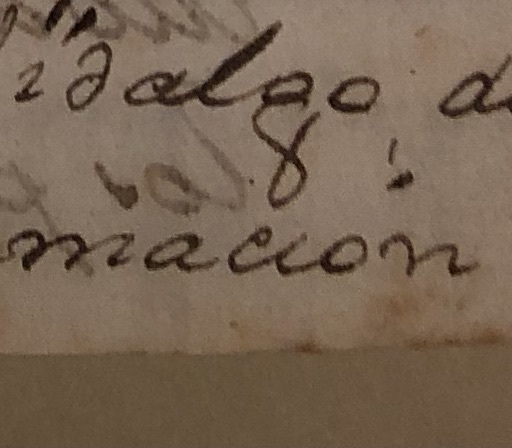 idalgo d
macion